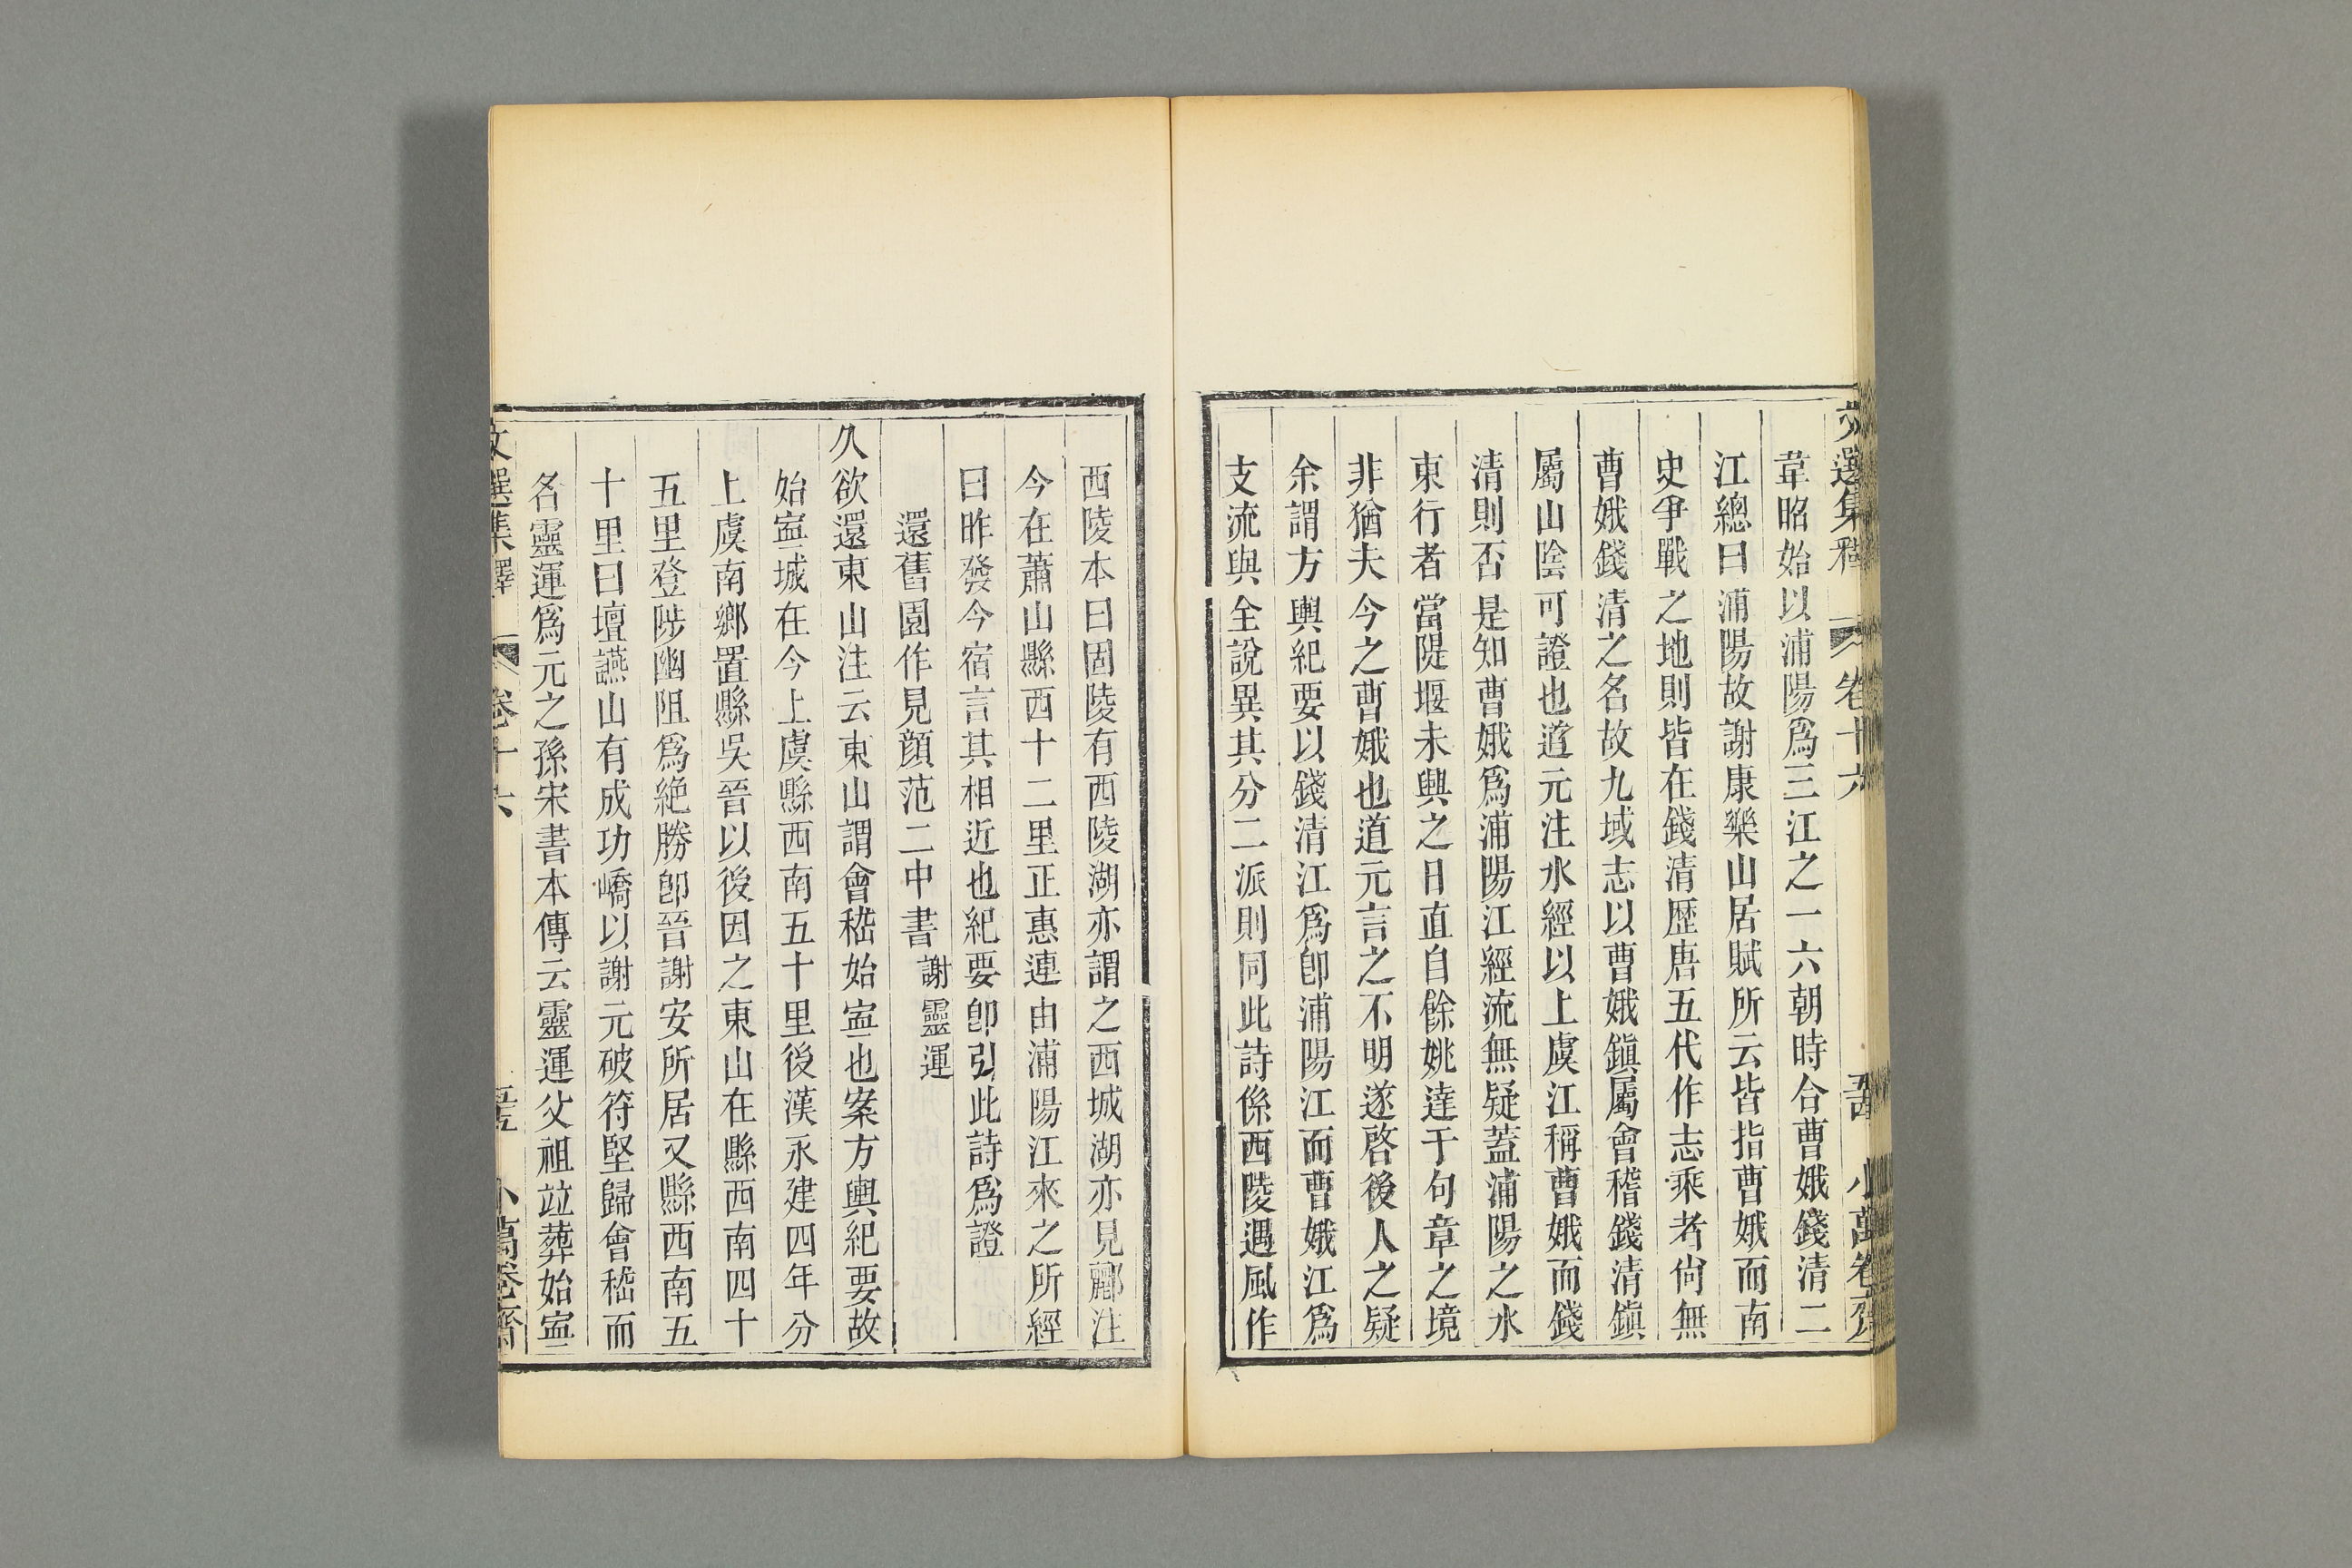 文選集釋 卷十六 小萬卷齋
韋昭始以浦陽爲三江之一六朝時合曹娥錢清二
江總曰浦陽故謝康樂山居賦所云皆指曹娥而南
史爭戰之地則皆在錢清歷唐五代作志乘者尙無
曹娥錢清之名故九域志以曹娥鎭屬會稽錢清鎭
屬山陰可證也道元注水經以上虞江稱曹娥而錢
清則否是知曹娥爲浦陽江經流無疑蓋浦陽之水
東行者當隄堰未興之日直自餘姚達于句章之境
非猶夫今之曹娥也道元言之不明遂啓後人之疑
余謂方輿紀要以錢清江爲卽浦陽江而曹娥江爲
支流與全說異其分二派則同此詩係西陵遇風作
西陵本曰固陵有西陵湖亦謂之西城湖亦見酈注
今在蕭山縣西十二里正惠連由浦陽江來之所經
曰昨發今宿言其相近也紀要卽引此詩爲證
還舊園作見顔范二中書 謝靈運
久欲還東山注云東山謂會嵇始寍也案方輿紀要故
始寍城在今上虞縣西南五十里後漢永建四年分
上虞南鄉置縣吳晉以後因之東山在縣西南四十
五里登陟幽阻爲絶勝卽晉謝安所居又縣西南五
十里曰壇讌山有成功嶠以謝元破符堅歸會嵇而
名靈運爲元之孫宋書本傳云靈運父祖竝葬始寍
文選集釋 卷十六 小萬卷齋